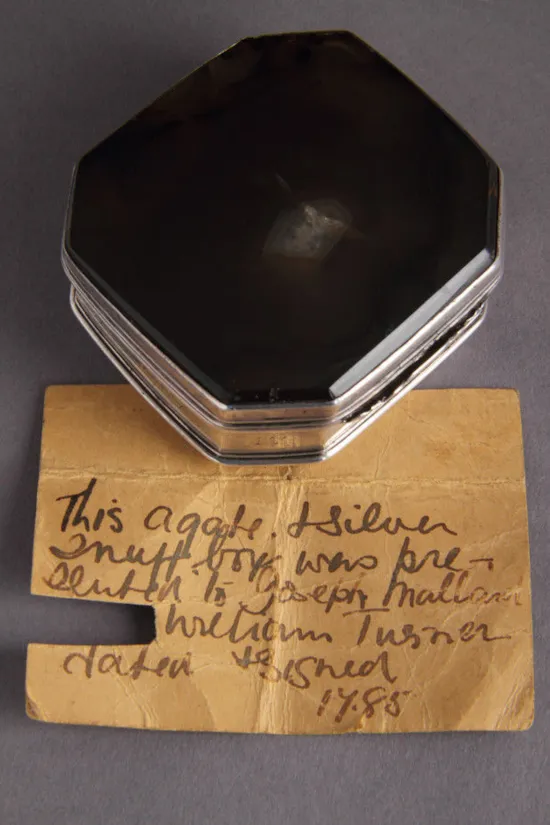 This agate & silver
snuff box was pre-
sented to Joseph Mallard
William Turner
dated & signed
1785